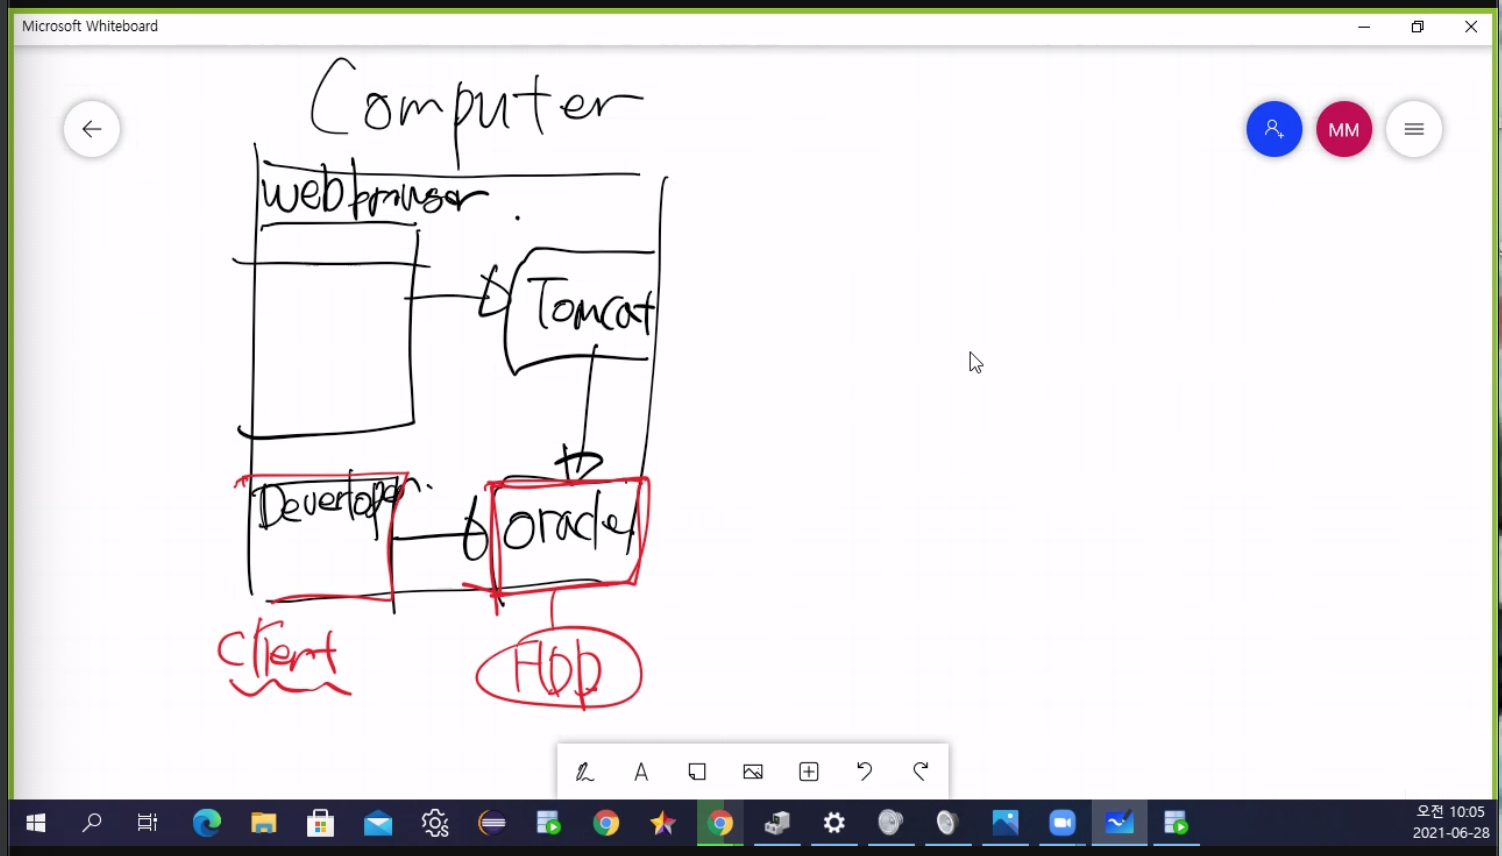 Microsoft Whiteboard
Computer
MM
Webbrowser
Tomcat
Deverloper
oracle
Client
HDD
A
오전 10:05
2021-06-28